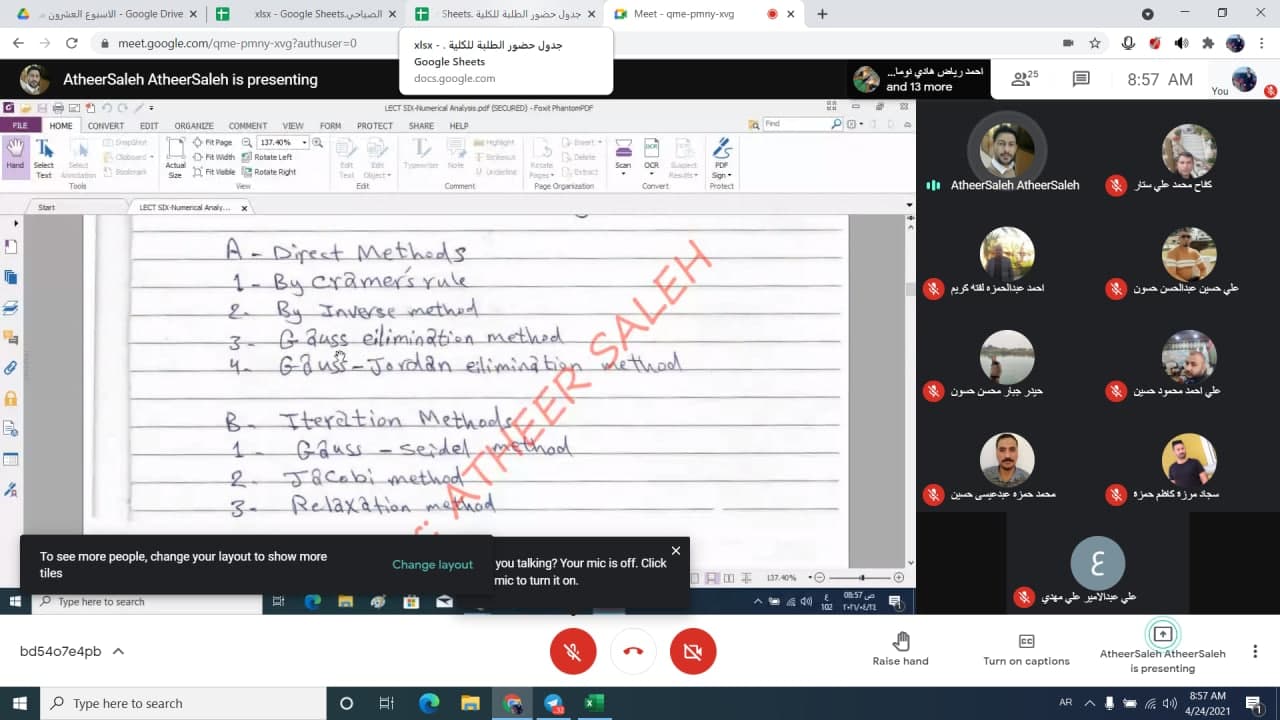 الاسبوع العشرون م - Google Drive
الصباحي.xlsx - Google Sheets
جدول حضور الطلبة للكلية .Sheets
Meet - qme-pmny-xvg
meet.google.com/qme-pmny-xvg?authuser=0
جدول حضور الطلبة للكلية . - xlsx
Google Sheets
docs.google.com
AtheerSaleh AtheerSaleh is presenting
احمد رياض هادي نوما...
and 13 more
25
8:57 AM
You
LECT SIX-Numerical Analysis.pdf (SECURED) - Foxit PhantomPDF
FILE HOME CONVERT EDIT ORGANIZE COMMENT VIEW FORM PROTECT SHARE HELP
Find
Hand
Select Text
Select Annotation
SnapShot
Clipboard
Bookmark
Tools
Actual Size
Fit Page
Fit Width
Fit Visible
137.40%
Rotate Left
Rotate Right
View
Edit Text
Edit Object
Edit
Typewriter
Note
Highlight
Strikeout
Underline
Comment
Rotate Pages
Insert
Delete
Extract
Page Organization
Scan
OCR
OCR
Suspect Results
Convert
PDF Sign
Protect
Start
LECT SIX-Numerical Analy...
A - Direct Methods
1 - By cramer's rule
2. By Inverse method
3 - Gauss eilimination method
4. Gauss - Jordan eilimination method
B. Iteration Methods
1 Gauss - seidel method
2. Jacobi method
3- Relaxation method
: ATHEER SALEH
137.40%
To see more people, change your layout to show more
tiles
Change layout
you talking? Your mic is off. Click
mic to turn it on.
Type here to search
ع
102
08:57 ص
٢٠٢١/٠٤/٢٤
1
AtheerSaleh AtheerSaleh
كفاح محمد علي ستار
احمد عبدالحمزه لفته كريم
علي حسين عبدالحسن حسون
حيدر جبار محسن حسون
علي احمد محمود حسين
محمد حمزه عبدعيسى حسين
سجاد مرزه كاظم حمزه
ع
علي عبدالامير علي مهدي
bd54o7e4pb
Raise hand
CC
Turn on captions
AtheerSaleh AtheerSaleh
is presenting
Type here to search
AR
8:57 AM
4/24/2021
1